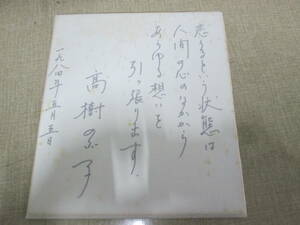 恋するという状態は
人間の心のなかから
あらゆる想いを
引っ張ります.
高樹のぶ子
一九八四年五月五日